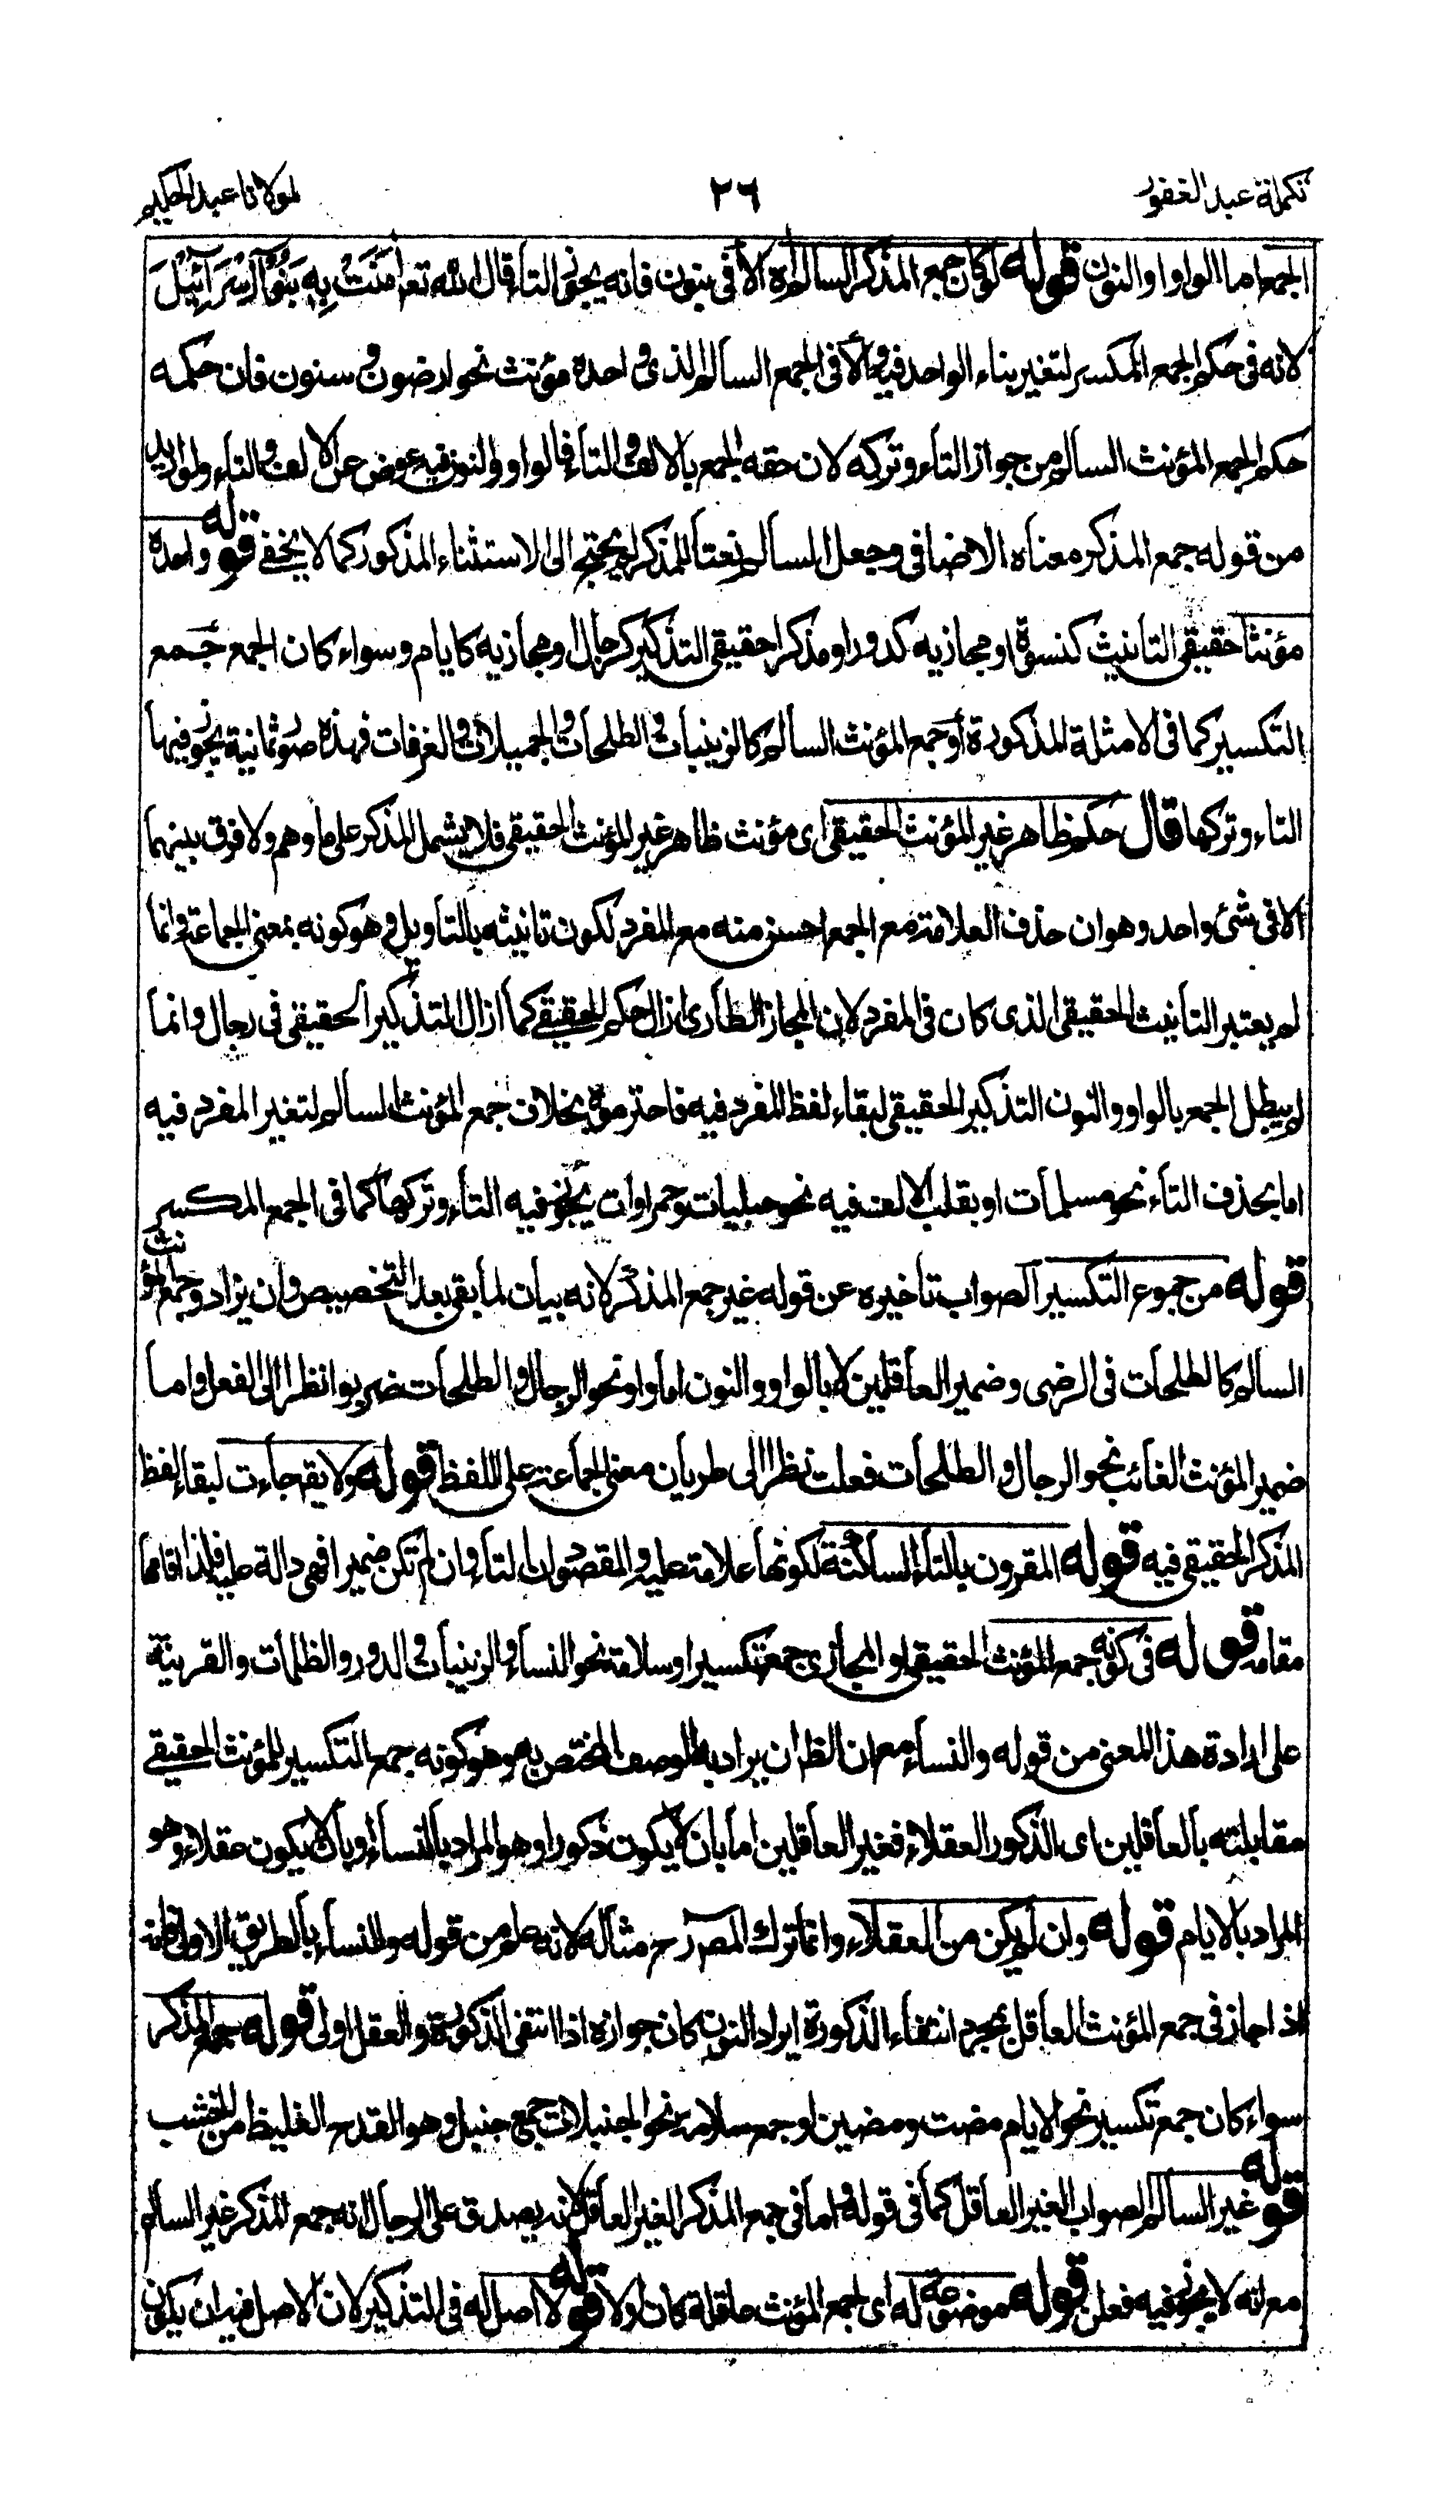 تكملة عبد الغفور
٢٦
لمولانا عبد الحكيم
الجمع اما الواو او النون قوله لو كان جمع المذكر السالم اه الا فى بنون فانه يجوز التاء قال الله تعـ امَنَتْ بِهٖ بَنُوْٓا اِسْرَآئِيْلَ
لانه فى حكم الجمع المكسر لتغير بناء الواحد فيه والا فى الجمع السالم الذى واحده مؤنث نحو ارضون و سنون فان حكمه
حكم الجمع المؤنث السالم من جواز التاء وتركه لان حقه الجمع بالالف والتاء فالواو والنون فيه عوض عن الالف والتاء ولو اريد
من قوله جمع المذكر معناه الاضافى وجعل السالم نعتا للمذكر لم يحتج الى الاستثناء المذكور كما لا يخفے قوله واحده
مؤنثا حقيقى التانيث كنسوة او مجازيه كدور او مذكرا حقيقى التذكير كرجال ومجازيه كايام وسواء كان الجمع جمع
التكسير كما فى الامثلة المذكورة او جمع المؤنث السالم كالزينبات والطلحات والجميلات والغرفات فهذه صور ثمانية يجوز فيها
التاء وتركها قال حكم ظاهر غير المؤنث الحقيقى اى مؤنث ظاهر غير المؤنث الحقيقى فلا يشمل المذكر على ما وهم ولا فرق بينهما
الا فى شئ واحد وهو ان حذف العلامة مع الجمع احسن منه مع المفرد لكون تانيثه بالتاويل وهو كونه بمعنى الجماعة وانما
لم يعتبر التانيث الحقيقى الذى كان فى المفرد لان المجاز الطارى ازال حكم الحقيقے كما ازال التذكير الحقيقى فى رجال وانما
لم يبطل الجمع بالواو والنون التذكير الحقيقى لبقاء لفظ المفرد فيه فاحترموه بخلاف جمع المؤنث السالم لتغير المفرد فيه
اما بحذف التاء نحو مسلمات او بقلب الالف فيه نحو حبليات وحمراوات يجوز فيه التاء وتركها كما فى الجمع المكسر
قوله من جموع التكسير الصواب تاخيره عن قوله غير جمع المذكر لانه بيان لما بقى بعد التخصيص وان يزاد وجمع المؤنث
السالم كالطلحات فى الرضى وضمير العاقلين لا بالواو والنون اما واو نحو الرجال والطلحات ضربوا نظرا الى الفعل واما
ضمير المؤنث الغائب نحو الرجال والطلحات فعلت نظرا الى طريان معنى الجماعة على اللفظ قوله ولا يقـ جاءت لبقاء لفظ
المذكر الحقيقى فيه قوله المقرون بالتاء الساكنة لكونها علامة عليه والمقصود ان التاء وان لم تكن ضميرا فهى دالة عليه فلذا اقامها
مقامه قوله فى كونه جمع المؤنث الحقيقى او المجازى جمع تكسير او سلامة نحو النساء والزينبات والدور والظلمات والقرينة
على ارادة هذا المعنى من قوله والنساء مع ان الظ ان يراد به الوصف المختص به وهو كونه جمع التكسير للمؤنث الحقيقے
مقابلته بالعاقلين اى الذكور العقلاء فغير العاقلين اما بان لا يكون ذكورا وهو المراد بالنساء او بان لا يكون عقلاء وهو
المراد بالايام قوله وان لم يكن من العقلاء وانما ترك المصـ رح مثاله لانه علم من قوله والنساء بالطريق الاولى فانه
اذا جاز فى جمع المؤنث العاقل بمجرد انتفاء الذكورة ايراد النون كان جوازه اذا انتفى الذكورة والعقل اولى قوله جمع المذكر
سواء كان جمع تكسير نحو الايام مضت ومضين او جمع سلامة نحو الجنبلات جمع جنبل وهو القدح الغليظ من الخشب
قوله غير السالم الصواب الغير العاقل كما فى قوله واما فى جمع المذكر الغير العاقل لانه يصدق على الرجال انه جمع المذكر غير السالم
مع انه لا يجوز فيه فعلن قوله موضوعة له اى لجمع المؤنث عاقلة كان اولا قوله لا اصل له فى التذكير لان الاصل فيه ان يكون